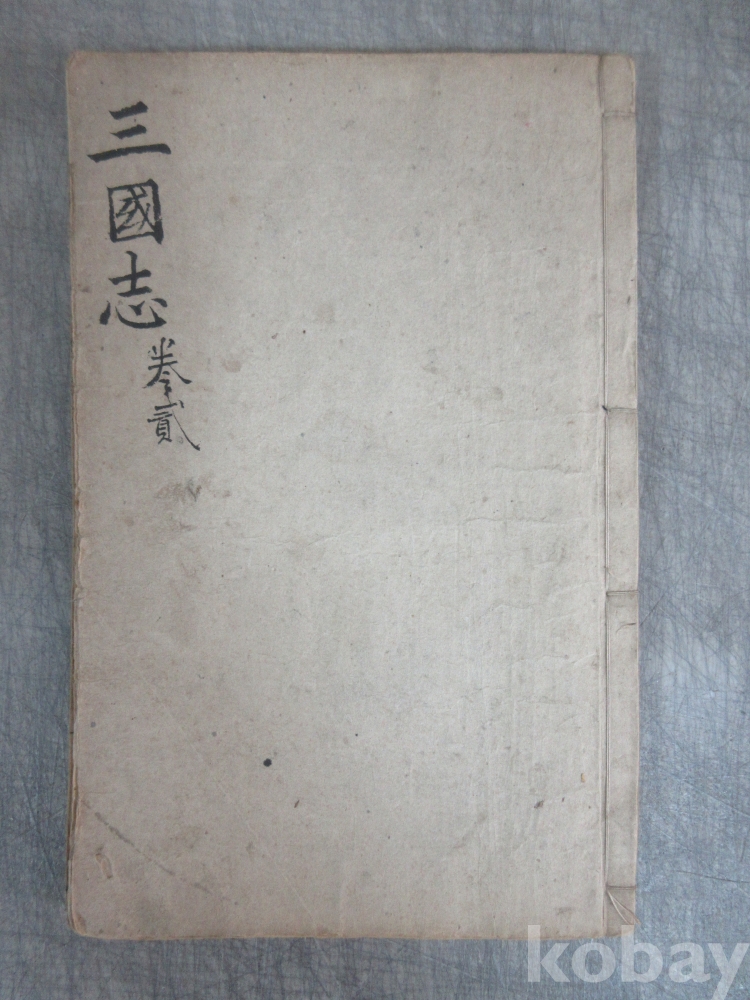 三國志
卷貳
kobay